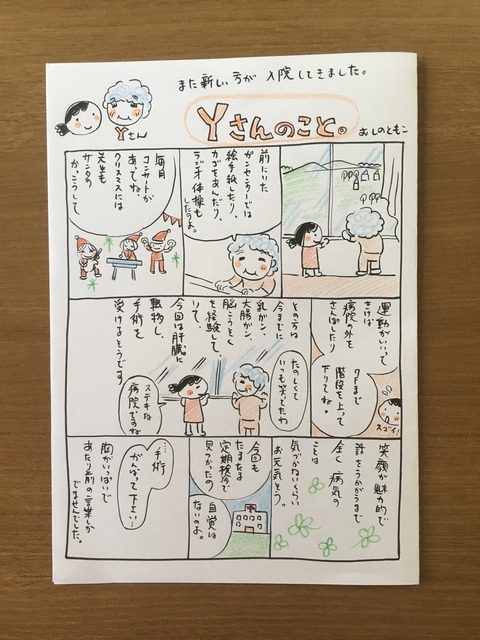 また新しい方が 入院してきました。
Yさん
Yさんのこと。
おしのともこ
前にいた
ガンセンターでは
絵手紙したり、
カゴをあんだり、
ラジオ体操も
したのよ。
毎月
コンサートが
あってね。
クリスマスには
先生も
サンタの
かっこうして
運動がいって
きけば
病院の外を
さんぽしたり
7Fまで
階段を上って
下りてね。
スゴイ!
その方は
今までに
乳がん、
大腸がん、
脳こうそく
を経験して、
今回は肝臓に
転移し、
手術を
受けるそうです
たのしくて
いつも笑でたわ
ステキな
病院ですね
笑顔が魅力的で
話をうかがうまで
全く 病気の
ことは
気づかないくらい
お元気そう。
今回も
たまたま
定期検診で
見つかったの
自覚は
ないのよ。
…手術
がんばって下さい…
胸がいっぱいで
あたり前の言葉しか
でませんでした。